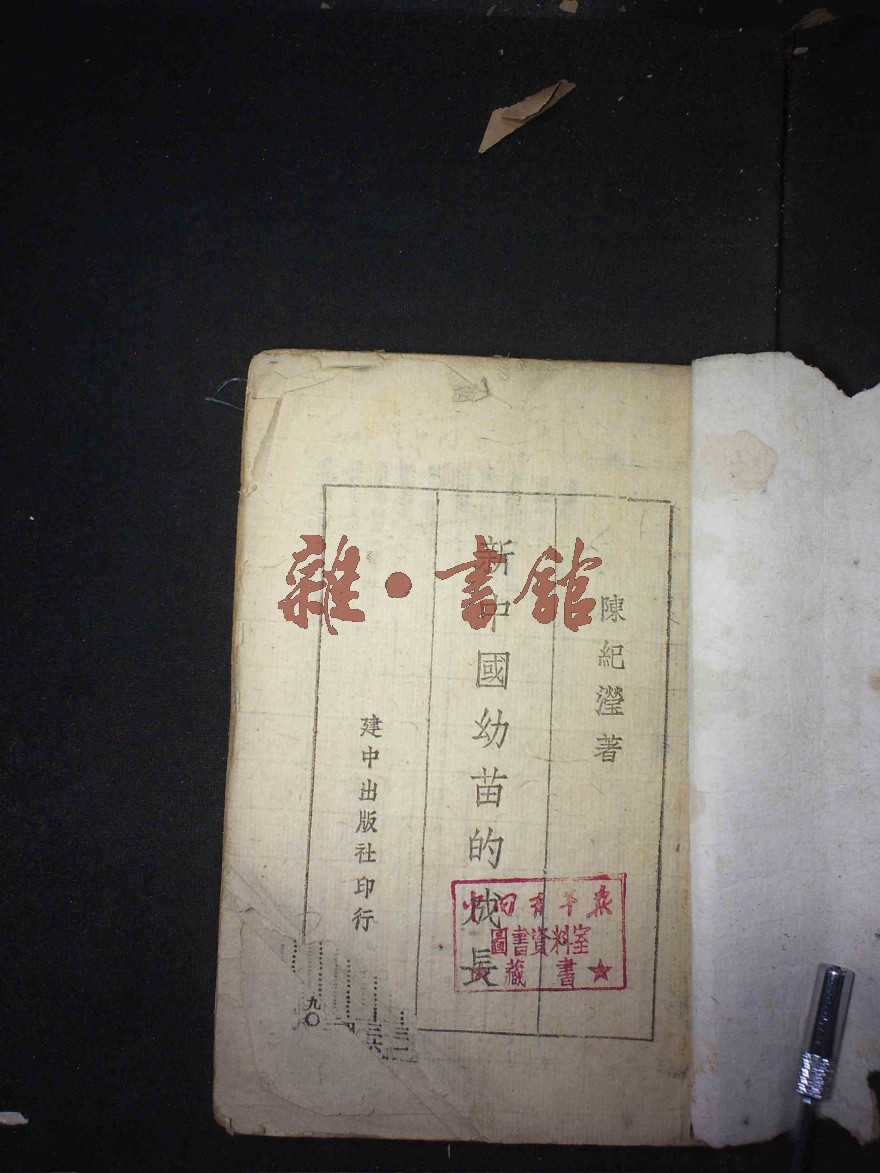 陳紀瀅著
新中國幼苗的成長
建中出版社印行
雜·書館
中国青年報
圖書資料室
藏書
九〇